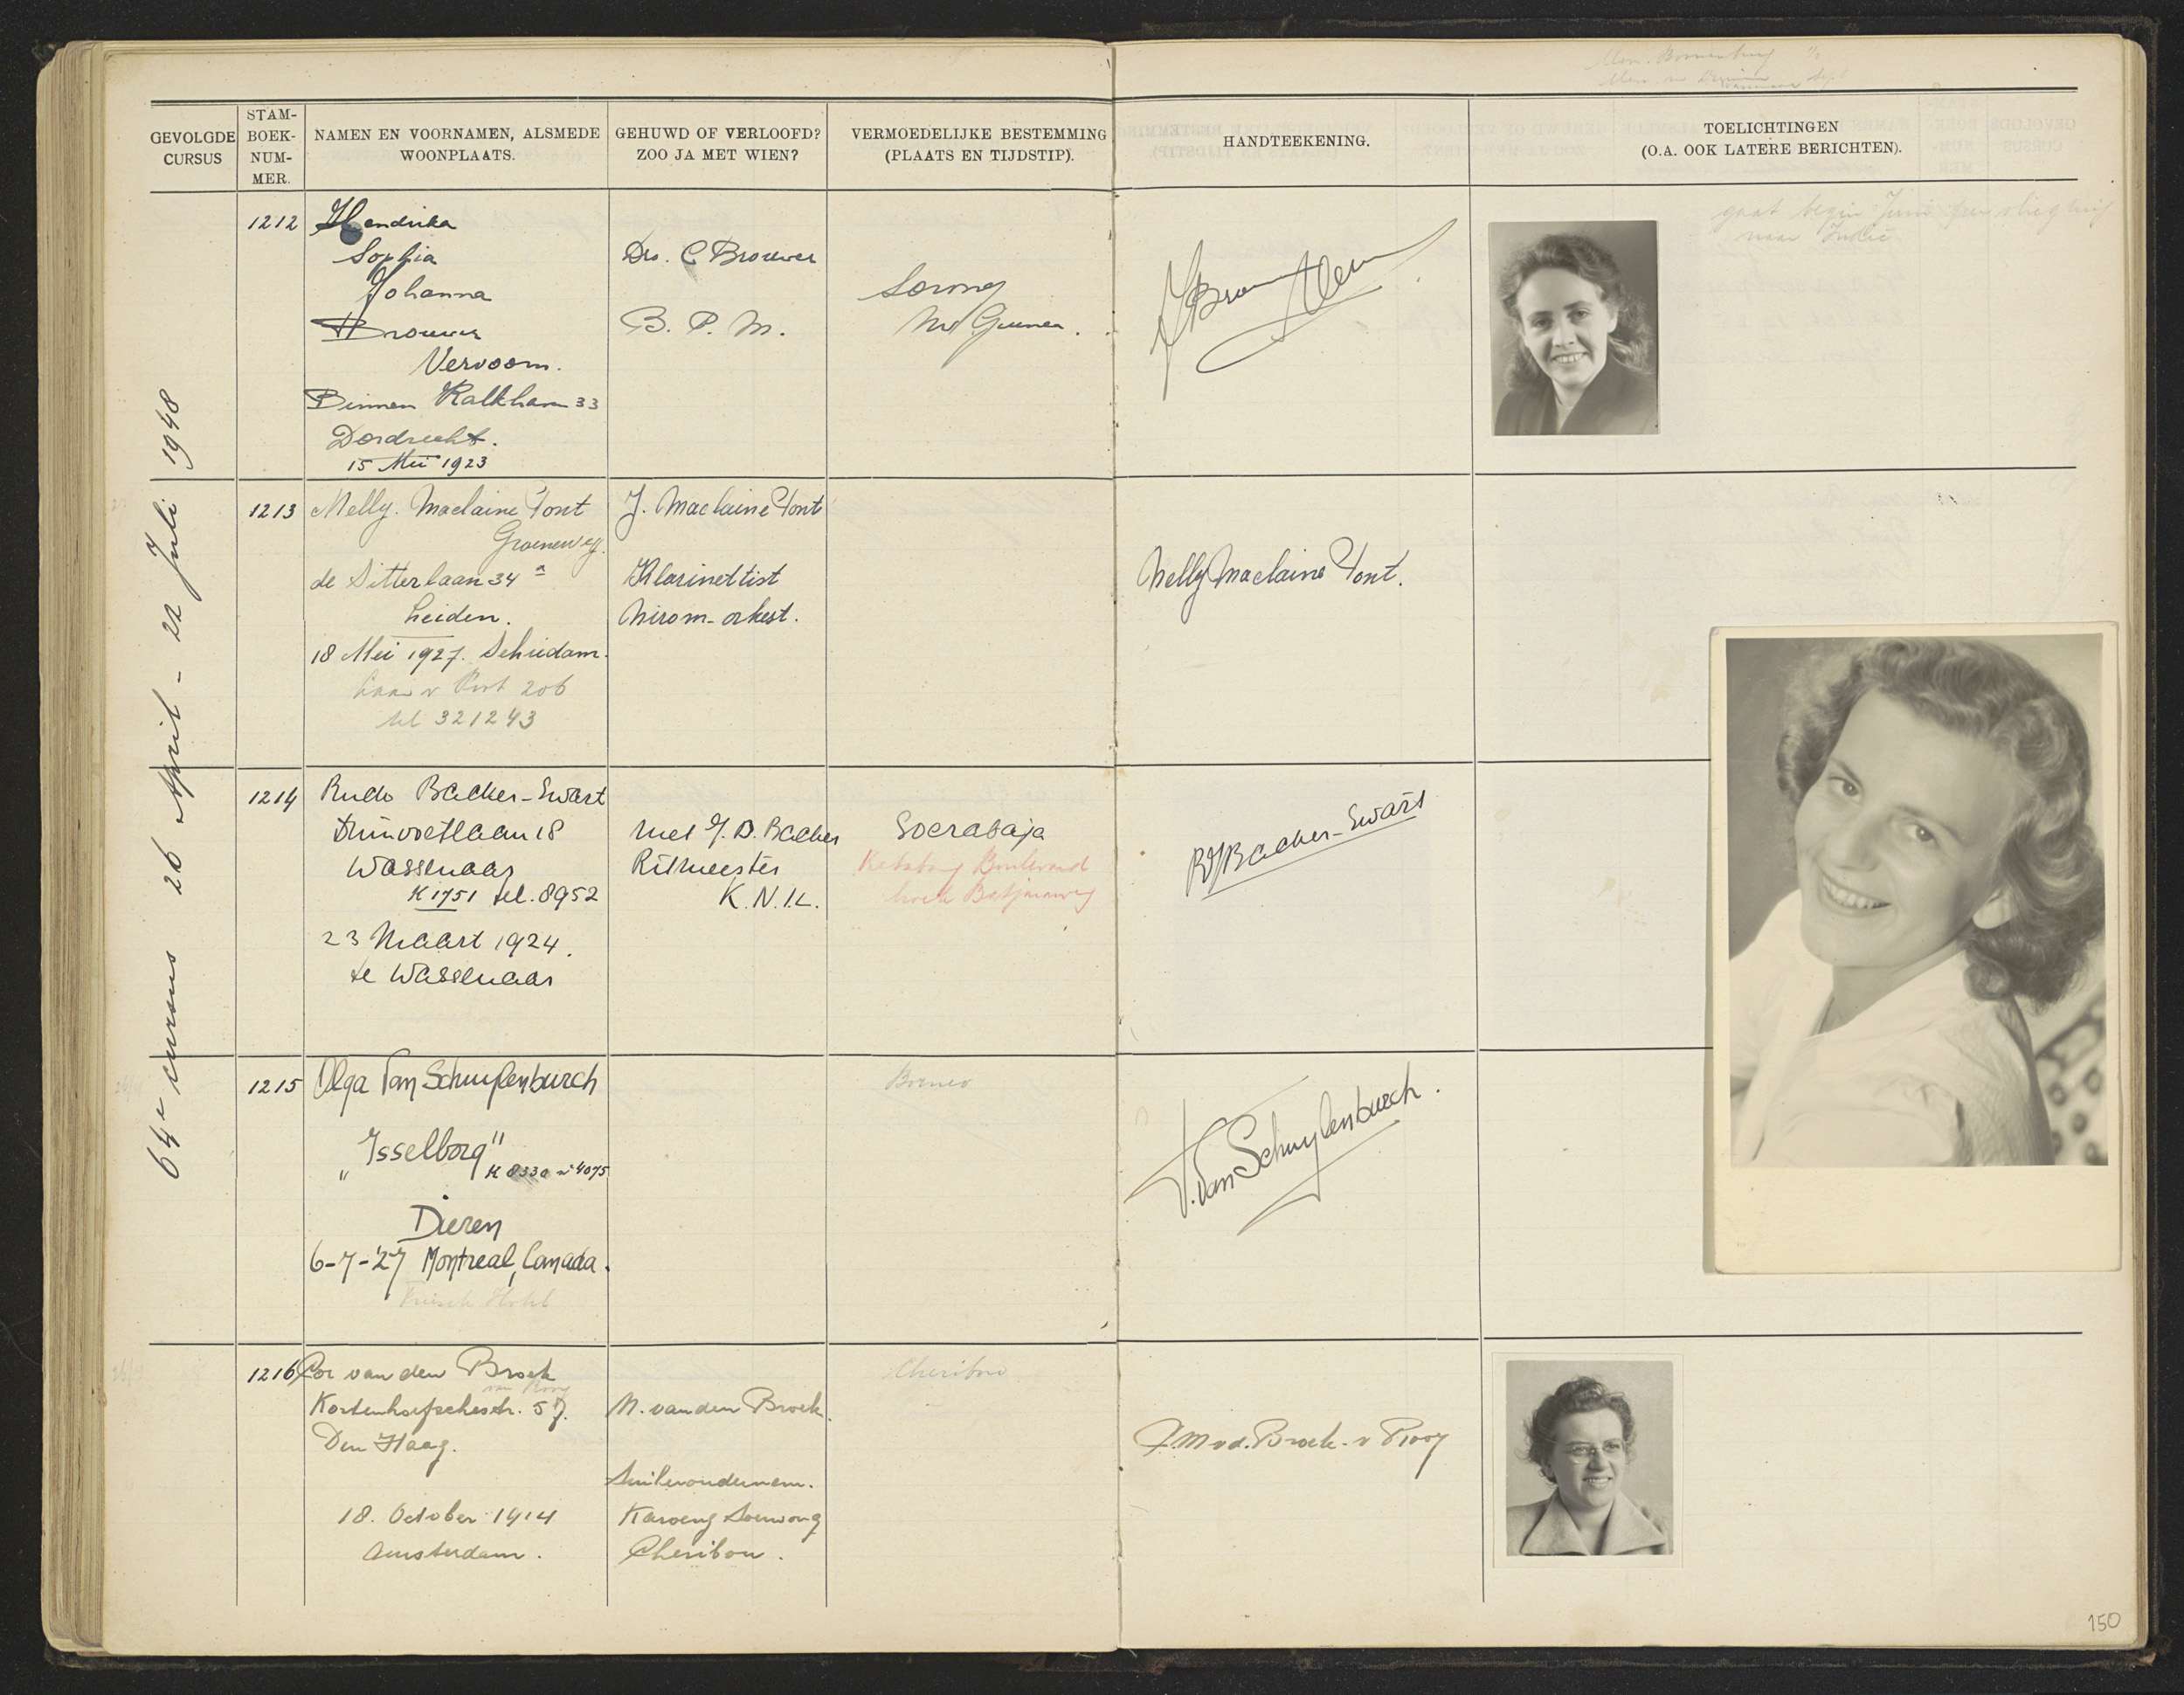 GEVOLGDE CURSUS
STAM-BOEK-NUM-MER.
NAMEN EN VOORNAMEN, ALSMEDE WOONPLAATS.
GEHUWD OF VERLOOFD? ZOO JA MET WIEN?
VERMOEDELIJKE BESTEMMING (PLAATS EN TIJDSTIP).
HANDTEEKENING.
TOELICHTINGEN (O.A. OOK LATERE BERICHTEN).
64e cursus 26 April - 22 Juli 1948
1212
Hendrika
Sophia
Johanna
Brouwer
Vervoorn.
Binnen Kalkhaven 33
Dordrecht.
15 Mei 1923
Drs. C Brouwer
B. P. M.
Sorong
Nw Guinea.
gaat begin Juni per vliegtuig
naar Indië
1213
Nelly. Maclaine Pont
Groeneweg.
de Sitterlaan 34 a
Leiden.
18 Mei 1927. Schiedam.
206
tel 321243
J. Maclaine Pont
Klarinettist
Nirom-orkest.
Nelly Maclaine Pont.
1214
Rudo Backer-Swart
Duinvoetlaan 18
Wassenaar
K 1751 tel. 8952
23 Maart 1924.
te Wassenaar
met J. D. Backer
Ritmeester
K.N.I.L.
Soerabaja
Boulevard
hoek
Backer-Swart
1215
Olga van Schuylenburch
"Isselborg"
K 8330 4075
Dieren
6-7-'27 Montreal, Canada.
Borneo
V. van Schuylenburch.
1216
Cor van den Broek
van Rooy
57.
Den Haag.
18. October 1914
Amsterdam.
M. van den Broek.
Suikerondernem.
Karoeng Soewong
Cheribon.
Cheribon
v.d. Broek - v Rooy
150